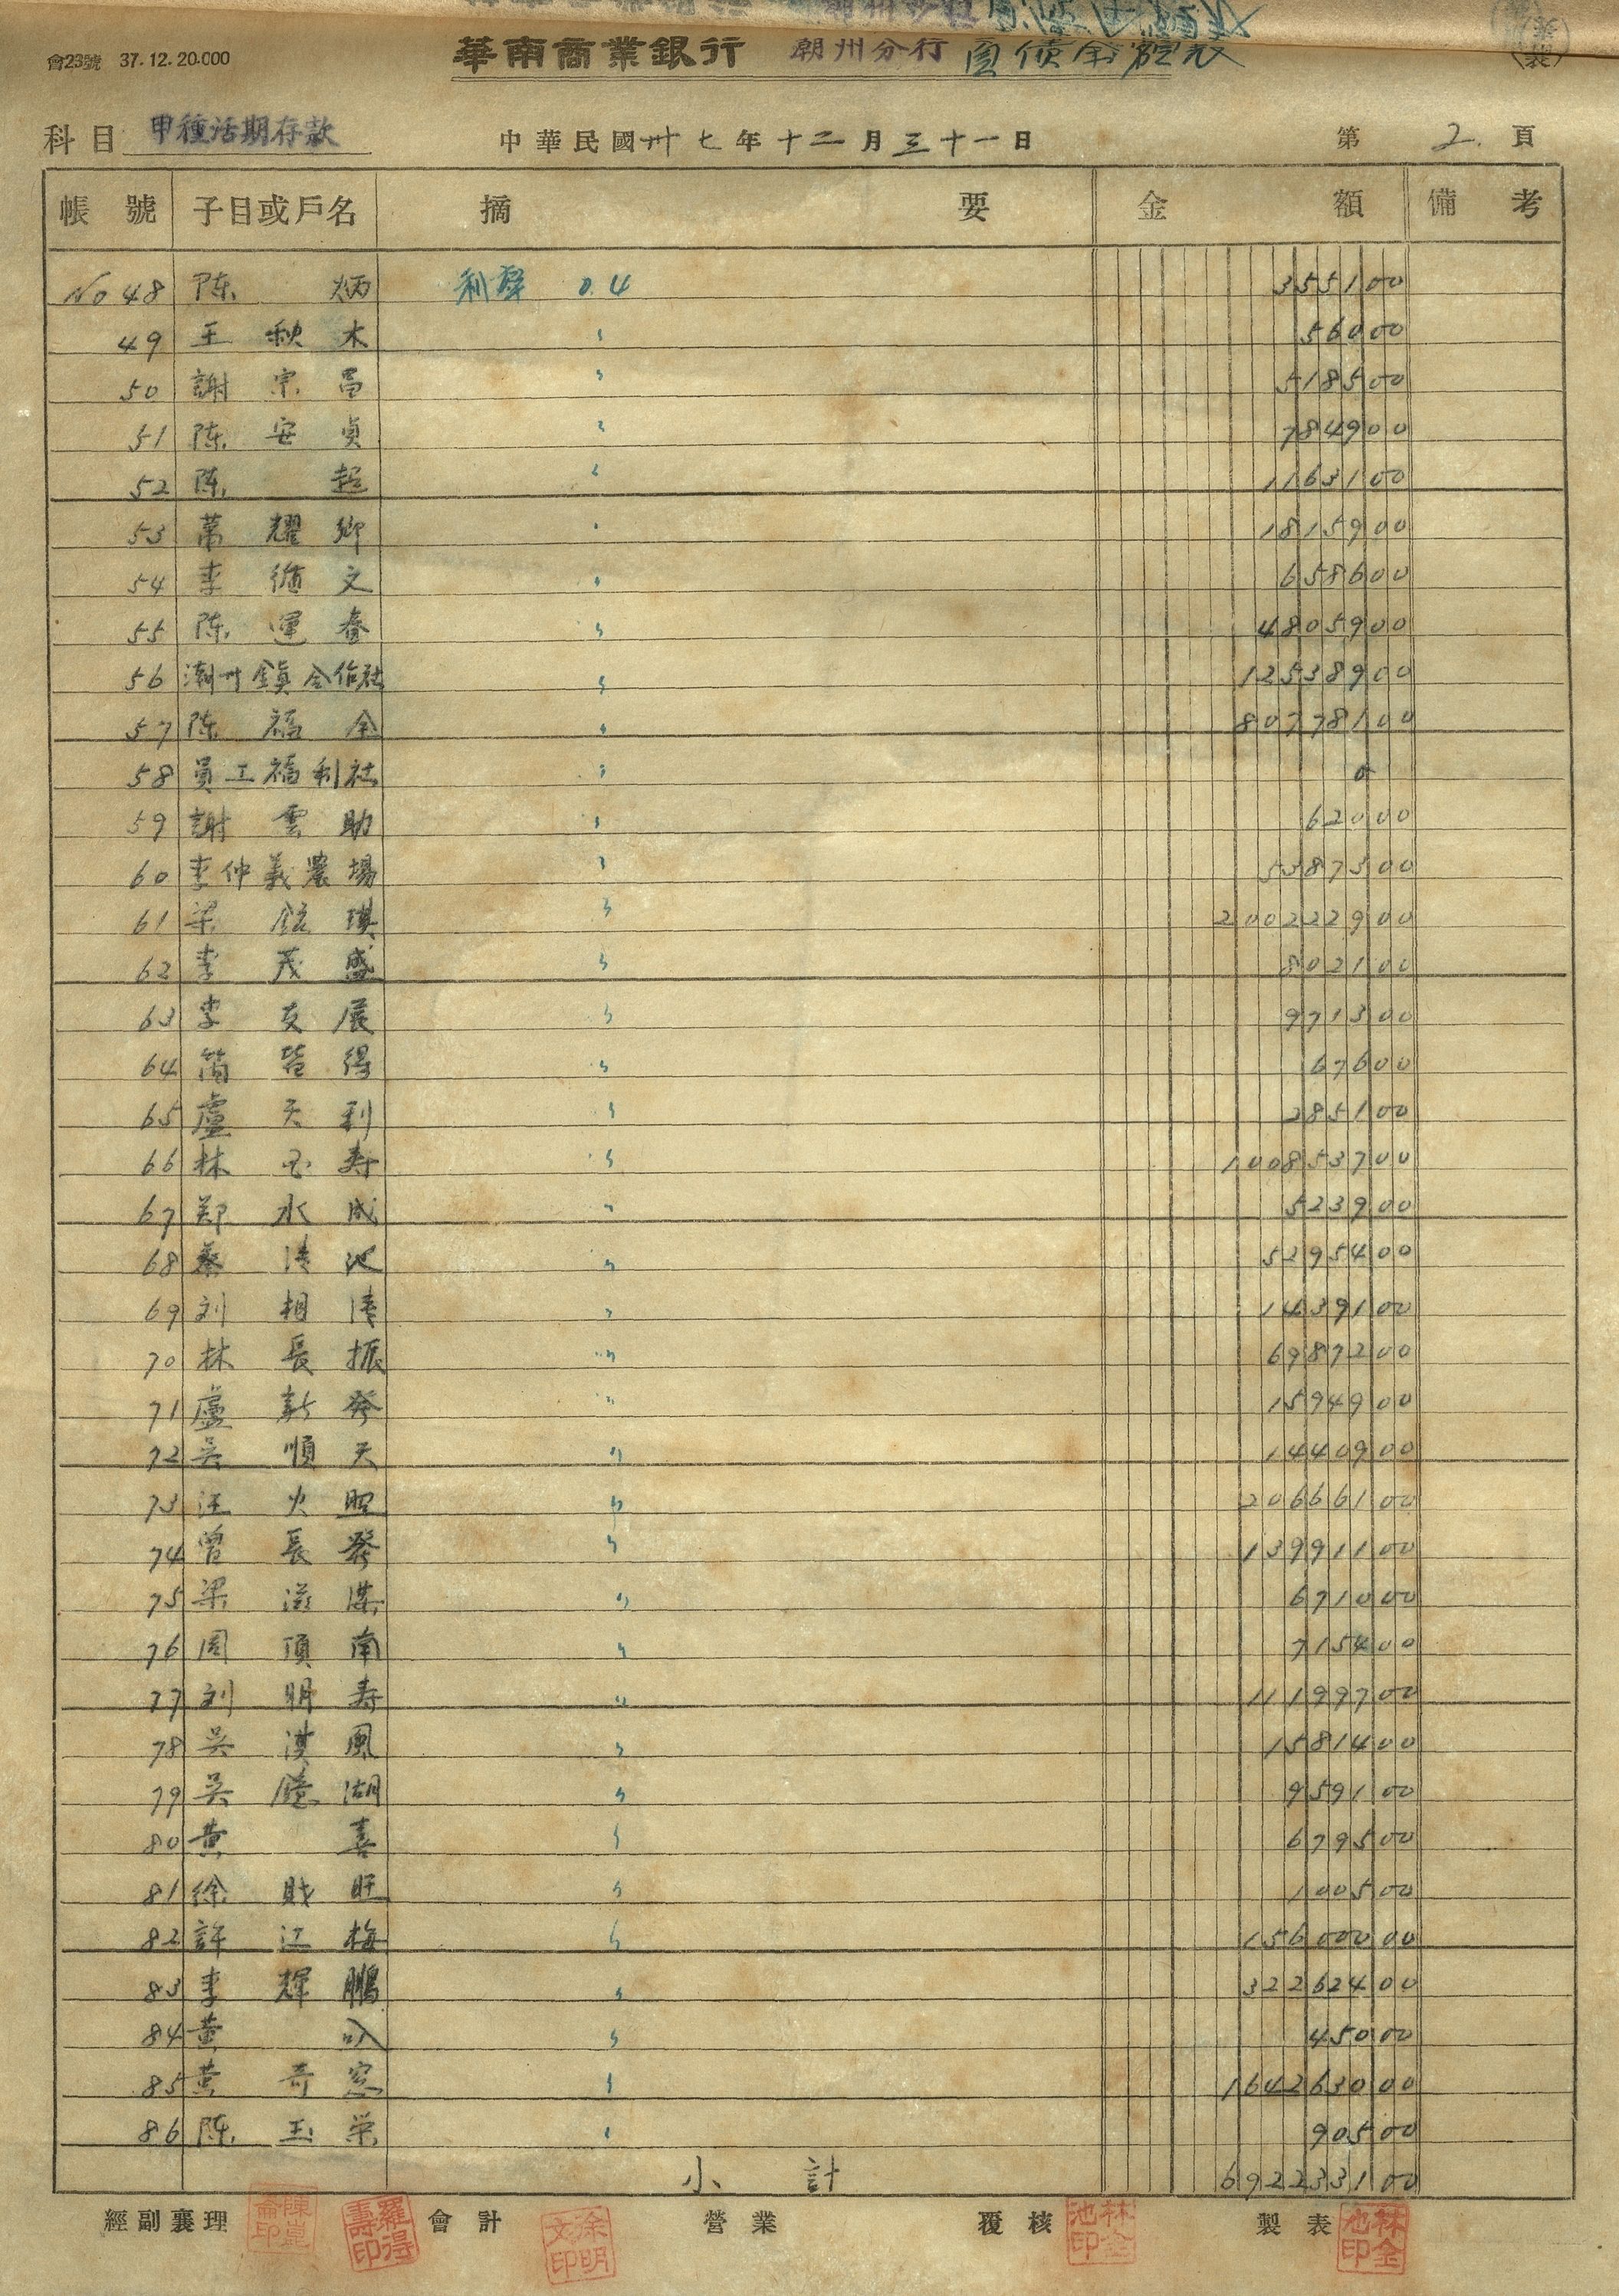 會23號 37.12.20.000
華南商業銀行 潮州分行 負債金額表
科目 甲種活期存款 中華民國卅七年十二月三十一日 第2.頁
帳號 子目或戶名 摘要 金額 備考
No 48 陈炳 利率 0.4 355100
49 王秋木 〃 56000
50 謝宗昌 〃 518500
51 陈安貞 〃 784900
52 陈超 〃 1163100
53 萬耀卿 〃 1815900
54 李循文 〃 658600
55 陈運春 〃 4805900
56 潮州鎮合作社 〃 12538900
57 陈福全 〃 80778100
58 員工福利社 〃 0
59 謝雲助 〃 62000
60 李仲義農場 〃 5387300
61 梁鋐琪 〃 200222900
62 李茂盛 〃 802100
63 李友展 〃 971300
64 簡皆得 〃 67600
65 盧天利 〃 285100
66 林玉寿 〃 100853700
67 郑水成 〃 523900
68 蔡清池 〃 5295400
69 刘相清 〃 1439100
70 林長振 〃 6987200
71 盧新發 〃 1594900
72 吳順天 〃 1440900
73 汪火照 〃 20666100
74 曾長發 〃 13991100
75 梁滋 〃 671000
76 周頂南 〃 715400
77 刘明寿 〃 11199700
78 吳漢風 〃 1581400
79 吳 湖 〃 959100
80 黄喜 〃 679500
81 徐財旺 〃 100500
82 許江梅 〃 15600000
83 李輝鵬 〃 32262400
84 黄 〃 45000
85 黄奇窓 〃 164263000
86 陈玉栄 〃 90500
小計 692233100
經副襄理 會計 營業 覆核 製表